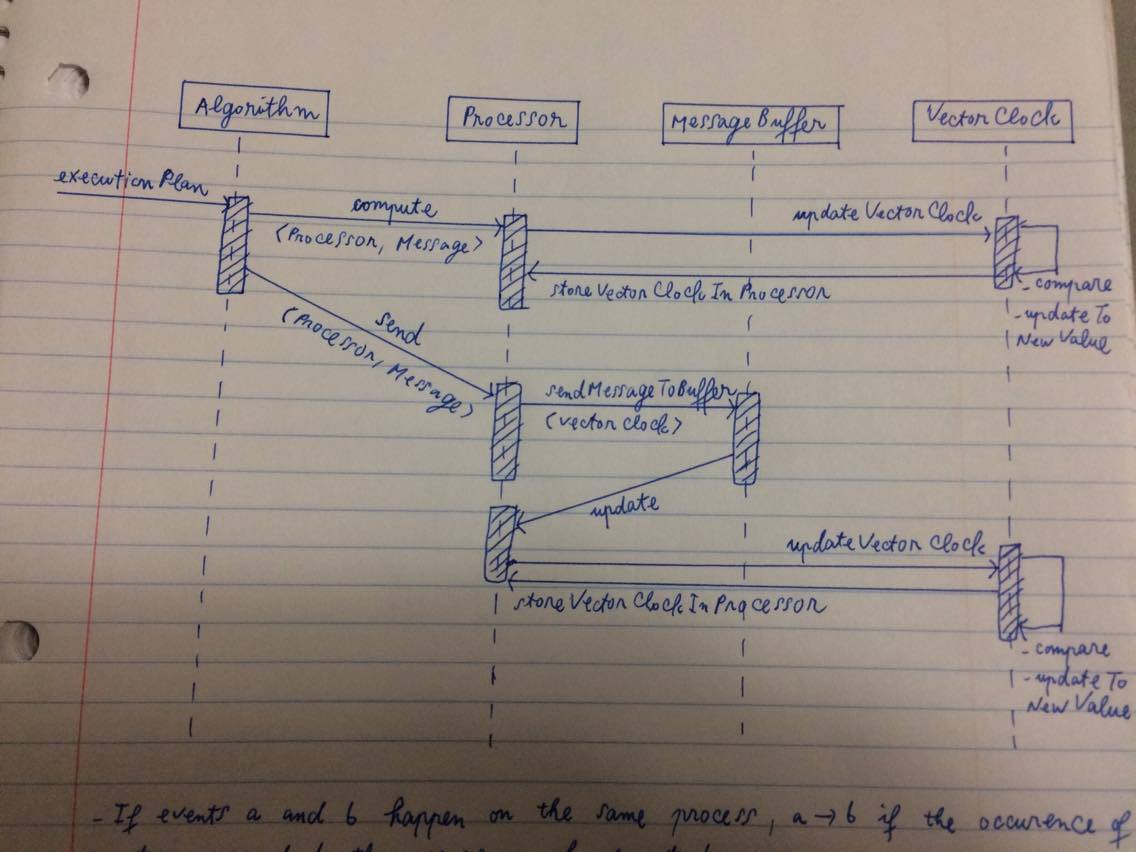 Algorithm
Processor
MessageBuffer
VectorClock
executionPlan
compute
<Processor, Message>
updateVectorClock
storeVectorClockInProcessor
- compare
- updateTo
New Value
send
<Processor, Message>
sendMessageToBuffer
<vectorclock>
update
updateVectorClock
storeVectorClockInProcessor
- compare
- updateTo
New Value
- If events a and b happen on the same process, a → b if the occurence of